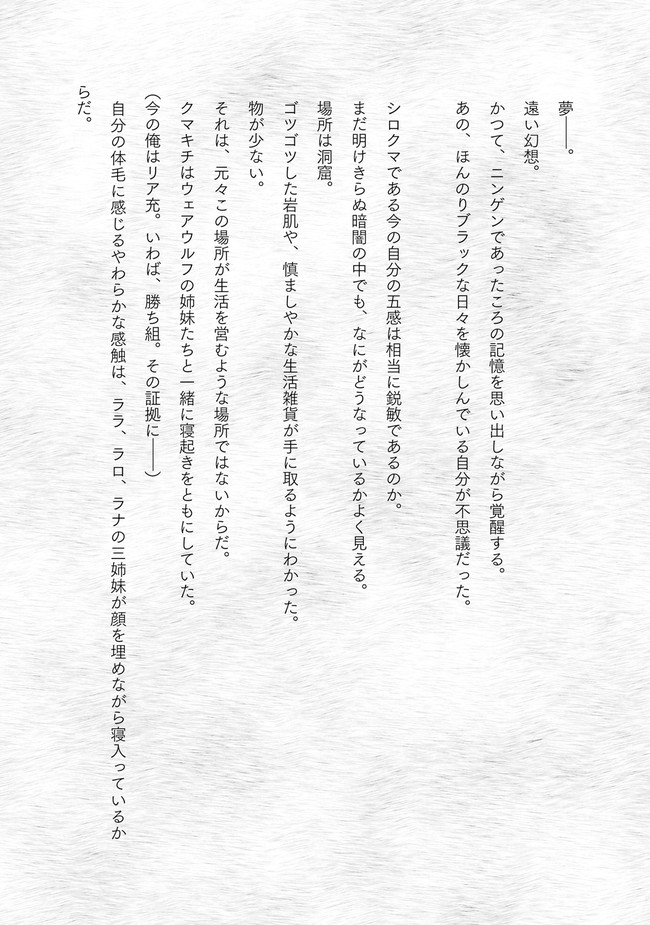 夢――。
遠い幻想。
かつて、ニンゲンであったころの記憶を思い出しながら覚醒する。
あの、ほんのりブラックな日々を懐かしんでいる自分が不思議だった。
シロクマである今の自分の五感は相当に鋭敏であるのか。
まだ明けきらぬ暗闇の中でも、なにがどうなっているかよく見える。
場所は洞窟。
ゴツゴツした岩肌や、慎ましやかな生活雑貨が手に取るようにわかった。
物が少ない。
それは、元々この場所が生活を営むような場所ではないからだ。
クマキチはウェアウルフの姉妹たちと一緒に寝起きをともにしていた。
（今の俺はリア充。いわば、勝ち組。その証拠に――）
自分の体毛に感じるやわらかな感触は、ララ、ラロ、ラナの三姉妹が顔を埋めながら寝入っているか
らだ。